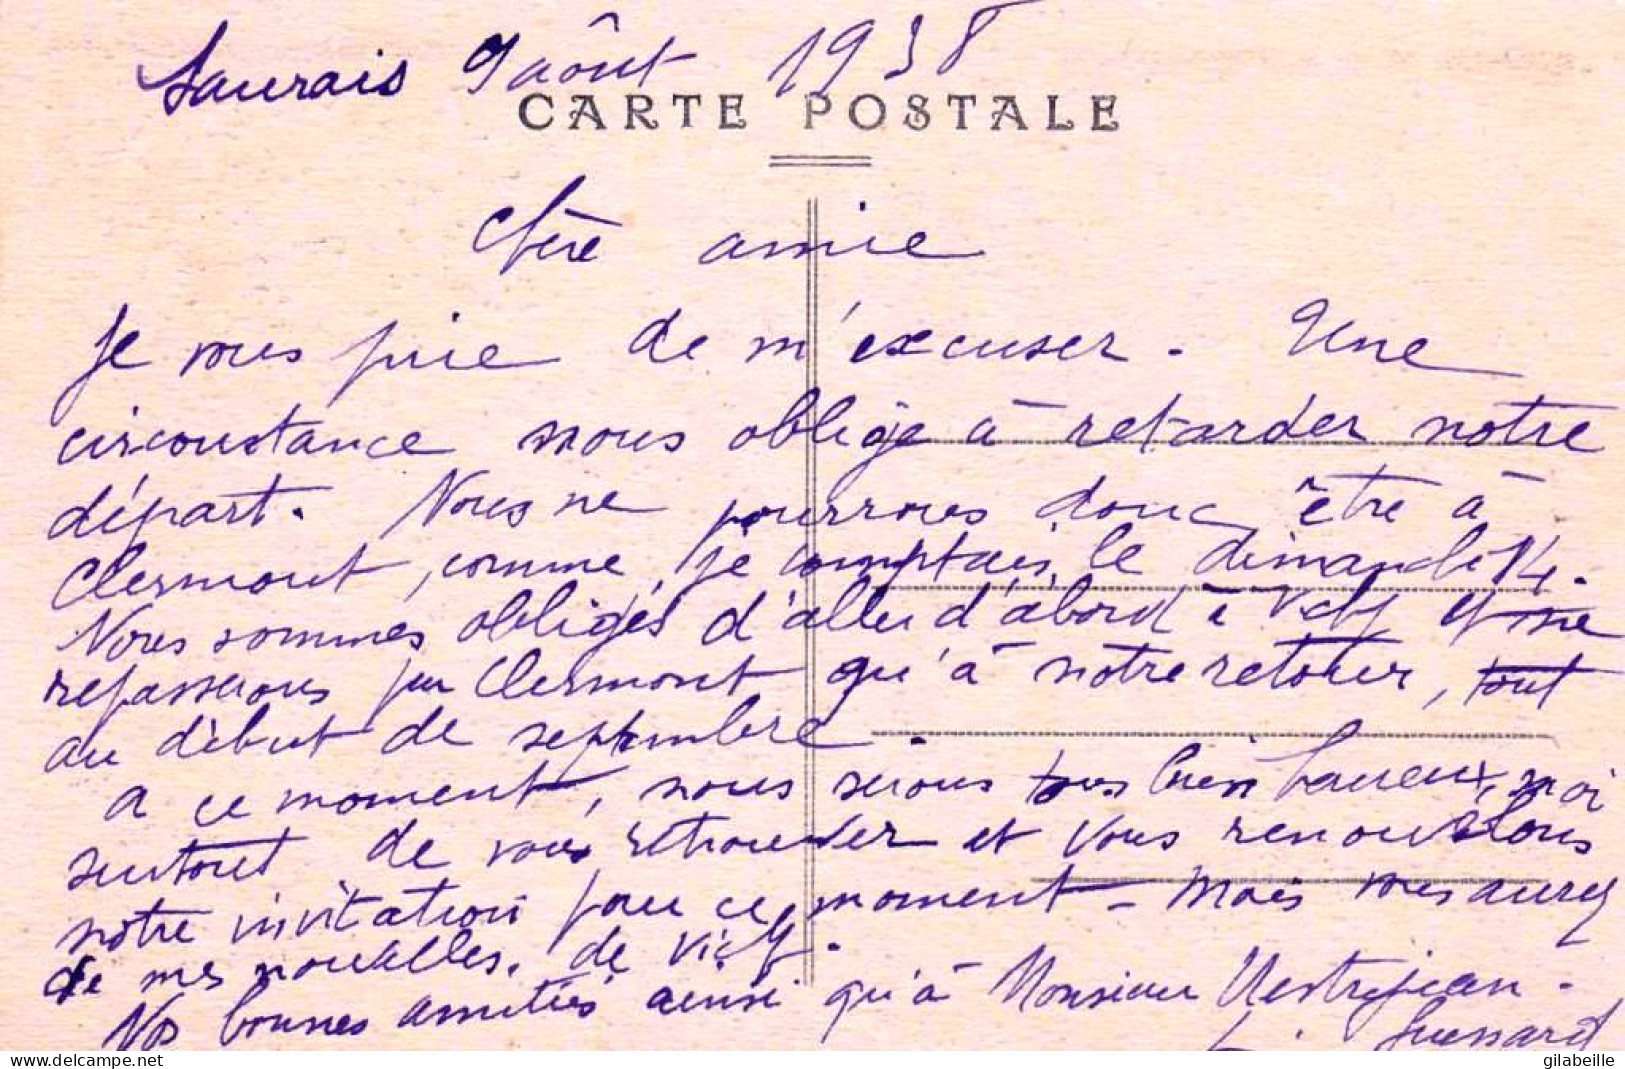 Saurais 9 août 1938
CARTE POSTALE
Chère amie
Je vous prie de m'excuser. Une
circonstance nous oblige à retarder notre
départ. Nous ne pourrons donc être à
Clermont, comme je comptais, le dimanche 14.
Nous sommes obligés d'aller d'abord à Vichy et ne
repasserons par Clermont qu'à notre retour, tout
au début de septembre.
A ce moment, nous serons tous bien heureux, moi
surtout de vous retrouver et vous renouvelons
notre invitation pour ce moment - Mais vous aurez
de mes nouvelles, de Vichy.
Nos bonnes amitiés ainsi qu'à Monsieur
L.
gilabeille
delcampe.net